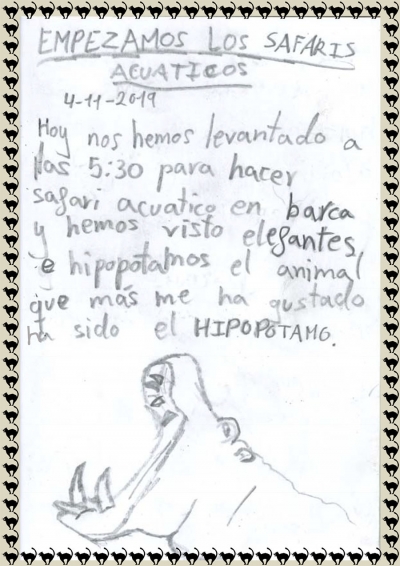 EMPEZAMOS LOS SAFARIS
ACUATICOS
4-11-2019
Hoy nos hemos levantado a
las 5:30 para hacer
safari acuatico en barca
y hemos visto elefantes,
e hipopotamos el animal
que más me ha gustado
ha sido el HIPOPÓTAMO.